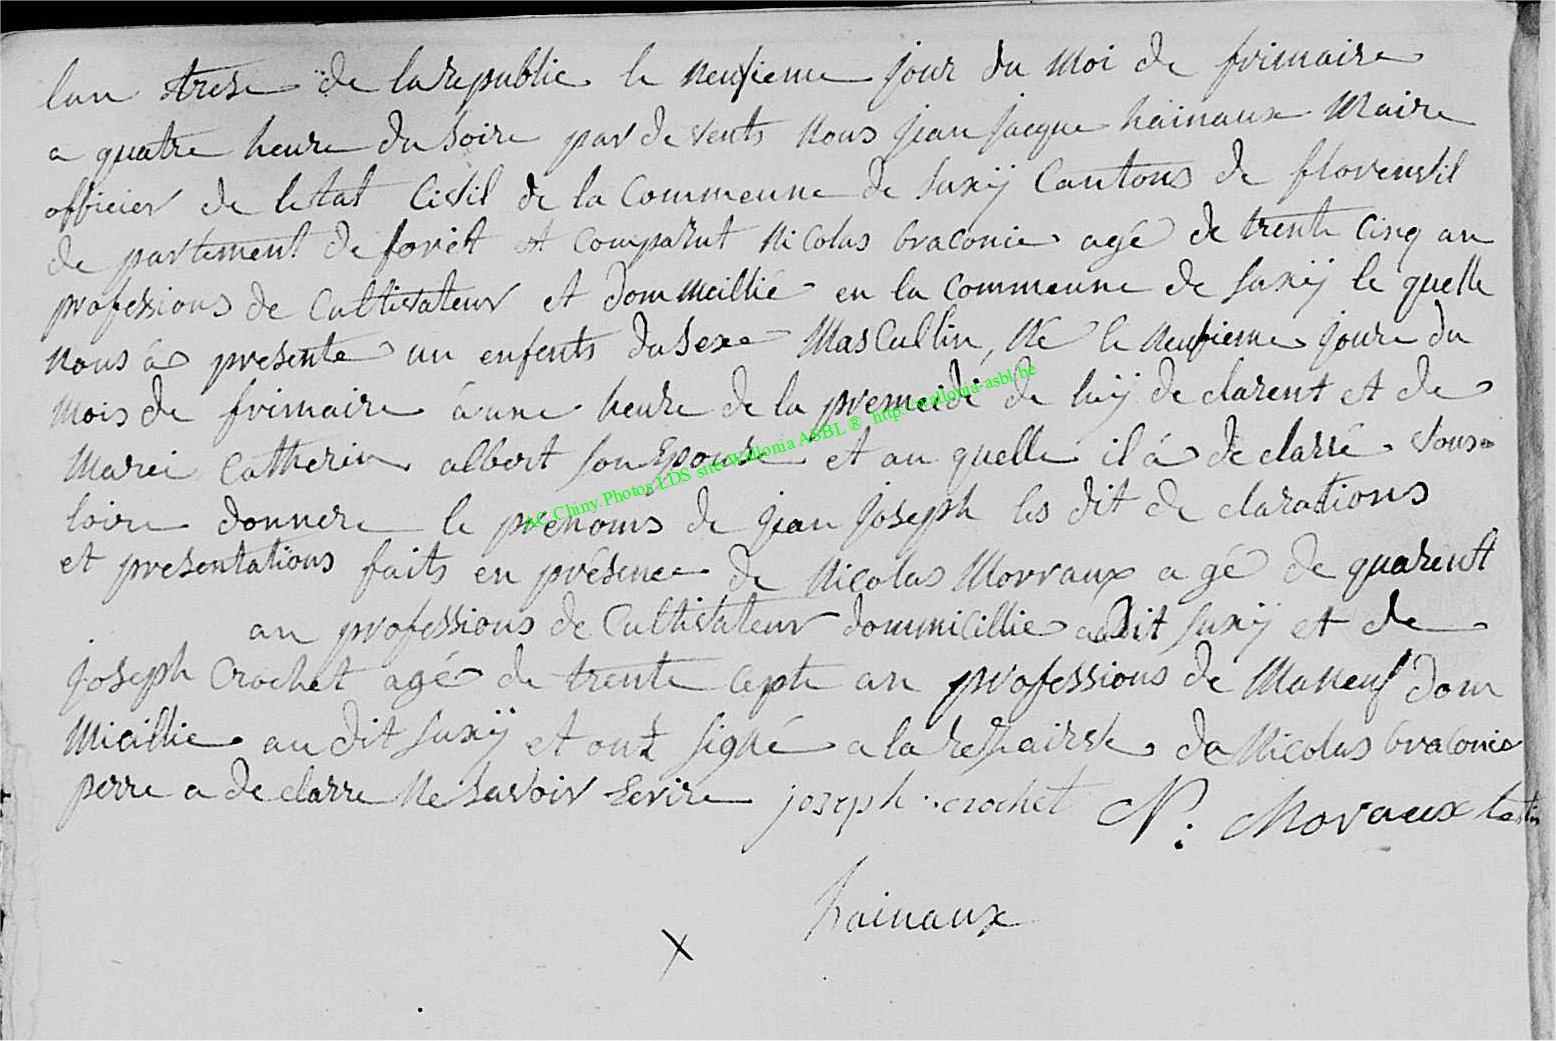 lan trese de la republic le neufieme jour du moi de frimaire
a quatre heure du soire par de vents nous jean jacque hainaux maire
officier de letat civil de la commeune de suxÿ cantons de florenvil
de partement de forêt et comparut nicolas braconie agé de trente cinq an
professions de cultivateur et dommeillié en la commeune de suxÿ le quelle
nous à presente un enfents du sexe mascullin, né le neufieme joure du
mois de frimaire à une heure de la premeidi de luÿ de clarent et de
marei catherin albert son epouse et au quelle il à de clarré vous=
loire donnere le prenoms de jean joseph les dit de clarations
et presentations faits en présence de nicolas morraux agé de quarent
an professions de cultivateur dommicillie au dit suxÿ et de
joseph crochet agé de trente cepte an professions de maneuf dom
micillie au dit suxÿ et ont signé a la de nicolas braconie
perre a de clarre ne savoir ecrire joseph crochet N: Moraux
hainaux
X
AC Chiny Photos LDS site wallonia ASBL ® http://wallonia-asbl.be